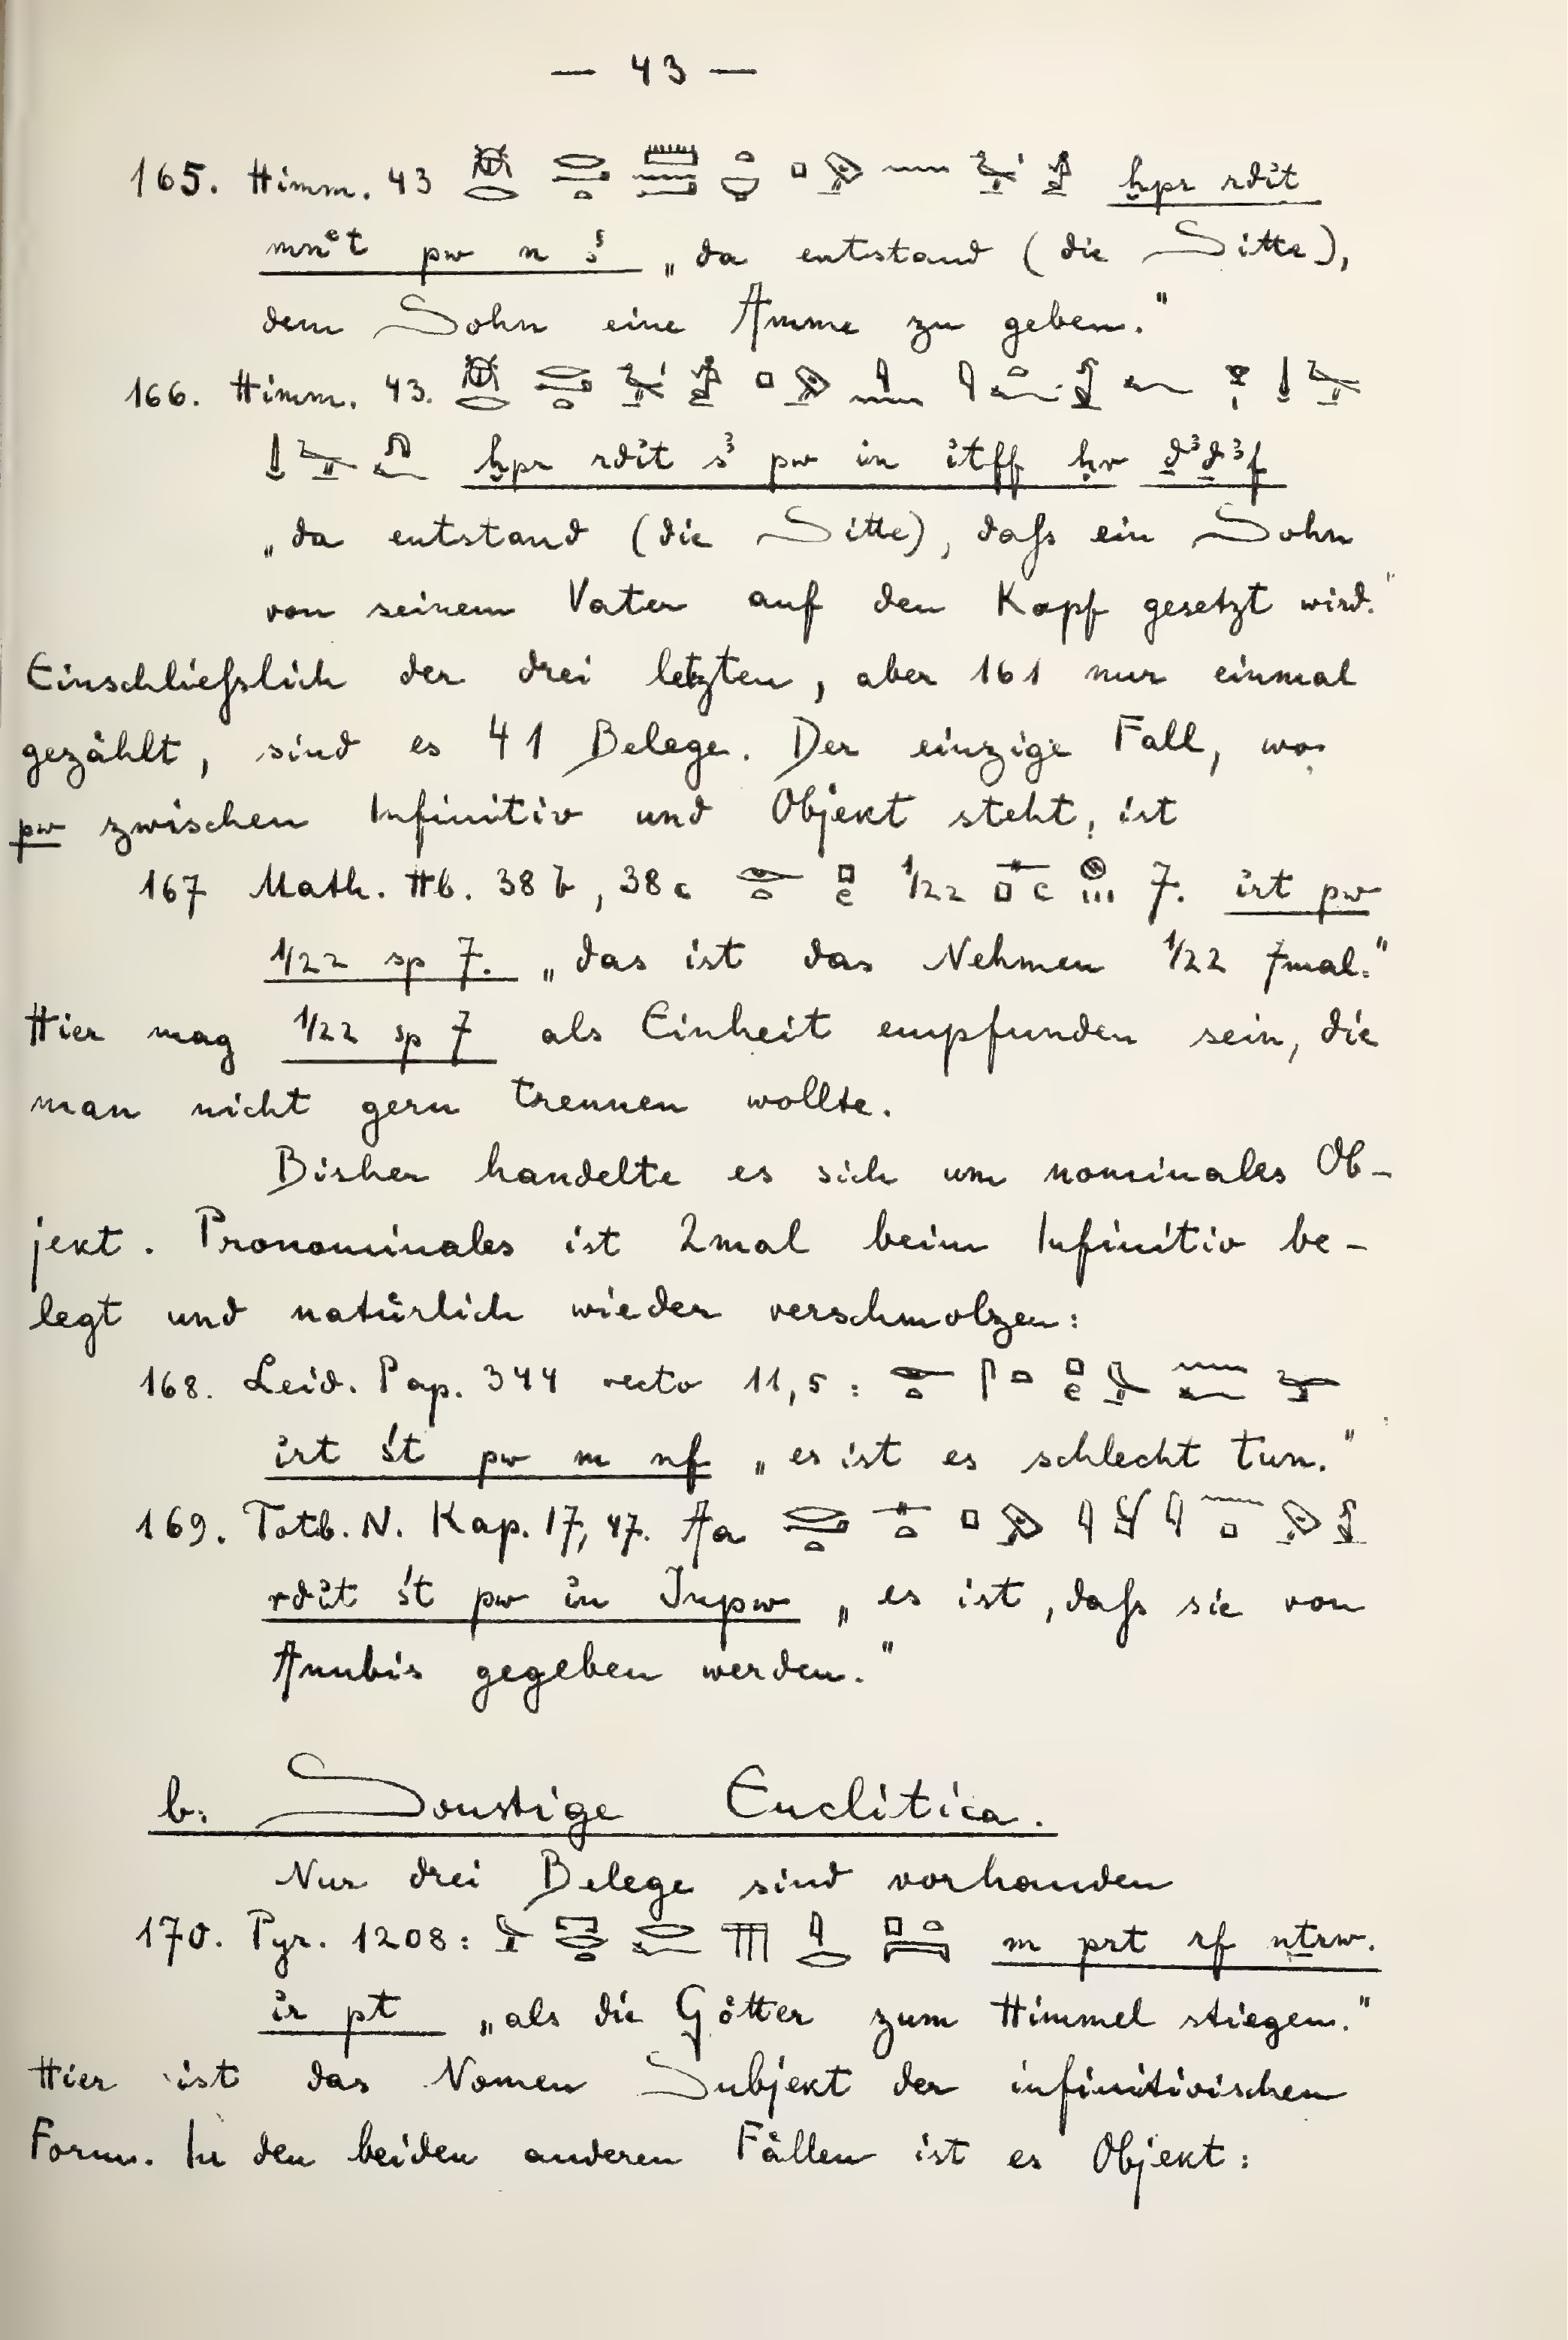 — 43 —
165. Himm. 43 ḫpr rdı͗t
mnꜥt pw n sꜣ „da entstand (die Sitte),
dem Sohn eine Amme zu geben.“
166. Himm. 43.
ḫpr rdı͗t sꜣ pw ı͗n ı͗tff ḥr ḏꜣḏꜣf
„da entstand (die Sitte), daſs ein Sohn
von seinem Vater auf den Kopf gesetzt wird.“
Einschlieſslich der drei letzten, aber 161 nur einmal
gezählt, sind es 41 Belege. Der einzige Fall, wo
pw zwischen Infinitiv und Objekt steht, ist
167 Math. Hb. 38b, 38c 1/22 7. ı͗rt pw
1/22 sp 7. „das ist das Nehmen 1/22 7mal.“
Hier mag 1/22 sp 7 als Einheit empfunden sein, die
man nicht gern trennen wollte.
Bisher handelte es sich um nominales Ob-
jekt. Pronominales ist 2mal beim Infinitiv be-
legt und natürlich wieder verschmolzen:
168. Leid. Pap. 344 recto 11,5:
ı͗rt śt pw m nf „es ist es schlecht tun.“
169. Totb. N. Kap. 17, 47. Aa
rdı͗t śt pw ı͗n I͗npw „es ist, daſs sie von
Anubis gegeben werden.“
b. Sonstige Enclitica.
Nur drei Belege sind vorhanden
170. Pyr. 1208: m prt rf nṯrw.
ı͗r pt „als die Götter zum Himmel stiegen.“
Hier ist das Nomen Subjekt der infinitivischen
Form. In den beiden anderen Fällen ist es Objekt: